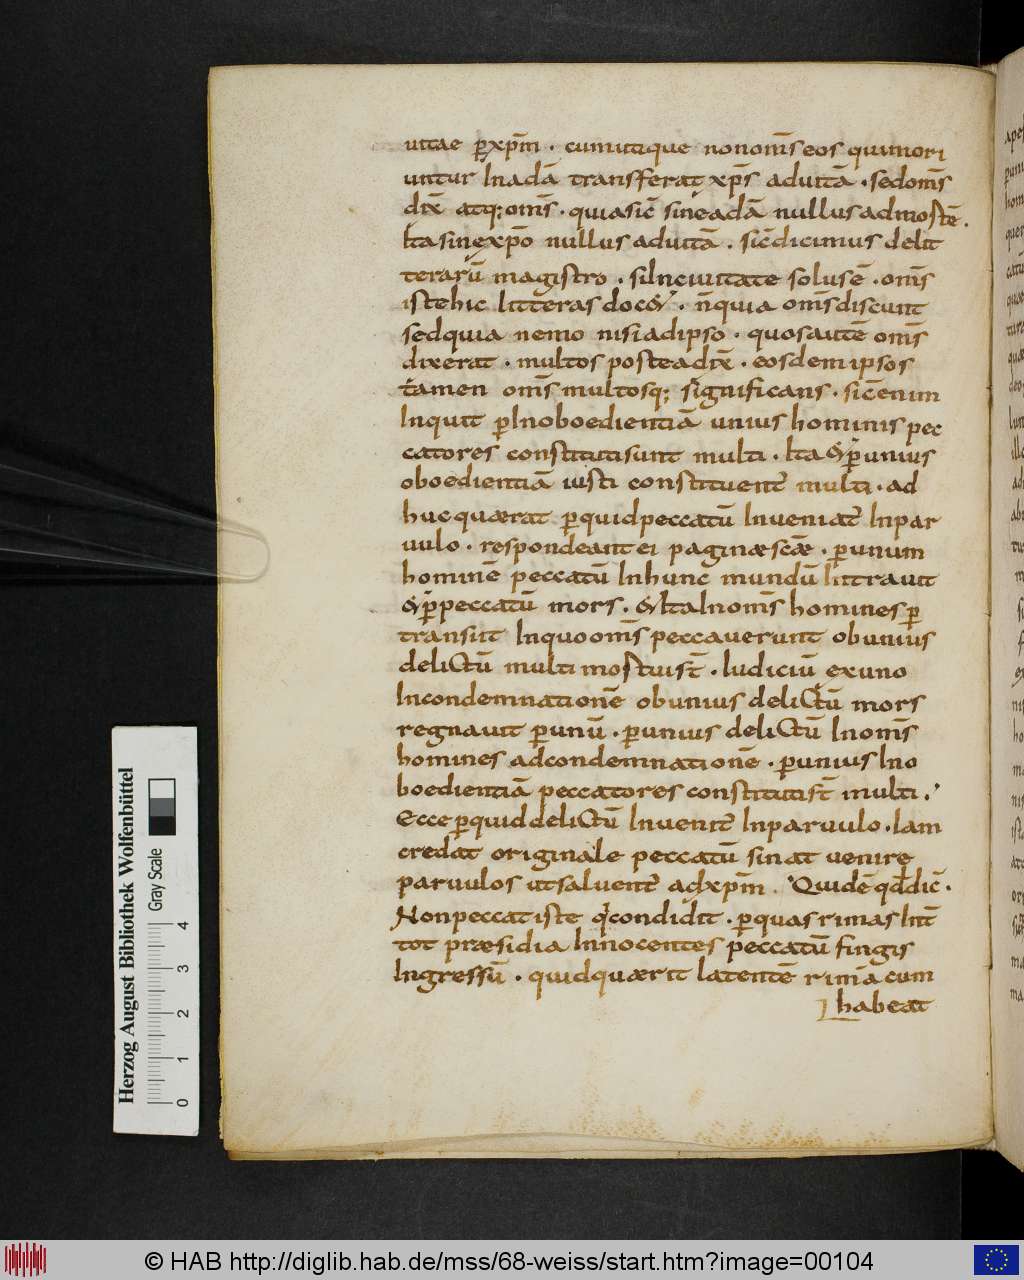 uitae p̱ xp̄m · cum utique non om̄s eos qui mori
untur In adā transferat xp̄s ad uitā · sed om̄s
dix̄ atq; om̄s · quia sic̄ sine adā nullus ad mostē ·
Ita sine xp̄o nullus ad uitā · sic̄ dicimus de lit
terarū magistro · si In ciuitate solus ē · om̄s
iste hic litteras docet · n̄ quia om̄s discunt
sed quia nemo nisi ad ipso · quos autē om̄s
dixerat · multos postea dix̄ · eosdem ipsos
tamen om̄s multosq; significans · sic̄ enim
Inquit p̱ Inoboedientiā unius hominis pec
catores constituti sunt multi · Ita & p̱ unius
oboedientiā iusti constituent̄ multi · ad
huc quærat p̱ quid peccatū Inueniat̄ In par
uulo · respondeant ei paginæ scǣ · p̱ unum
hominē peccatū In hunc mundū Intrauit
& p̱ peccatū mors · & Ita In om̄s homines p̱
transiit In quo om̄s peccauerunt ob unius
delictū multi mostui st̄ · Iudiciū ex uno
In condemnationē ob unius delictū mors
regnauit p̱ unū · p̱ unius delictū In om̄s
homines ad condemnationē · p̱ unius Ino
boedientiā peccatores constituti st̄ multi ·
Ecce p̱ quid delictū Inuenit̄ In paruulo · Iam
credat originale peccatū sinat uenire
paruulos ut saluent̄ ad xp̄m · Quid ē qđ dic̄ ·
Non peccat iste q' condidit · p̱ quas rimas Int̄
tot præsidia Innocentes peccatū fingis
Ingressū · quid quærit latentē rimā cum
habeat
Herzog August Bibliothek Wolfenbüttel
Gray Scale
0 1 2 3 4
© HAB http://diglib.hab.de/mss/68-weiss/start.htm?image=00104